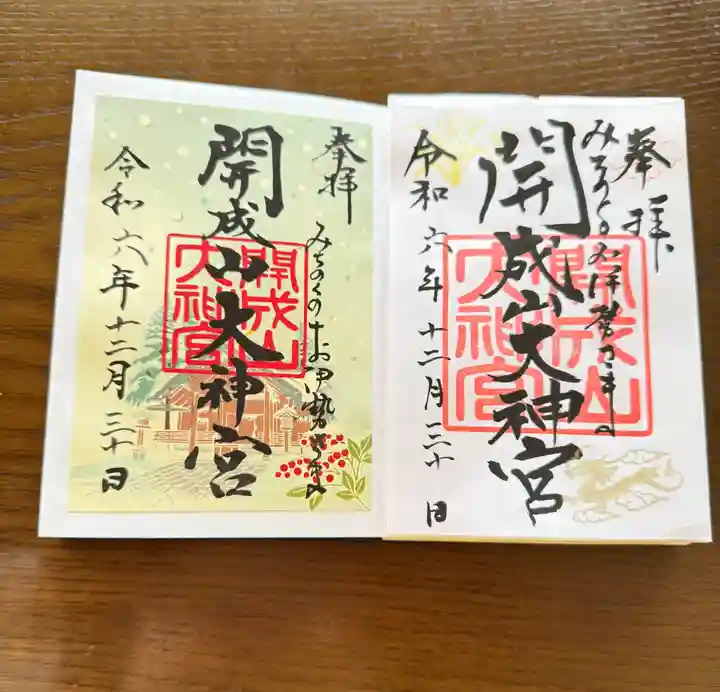 奉拝
みちのくのお伊勢さま
開成山大神宮
開成山
大神宮
令和六年十二月三十日
奉拝
みちのくのお伊勢さま
開成山大神宮
開成山
大神宮
令和六年十二月三十日